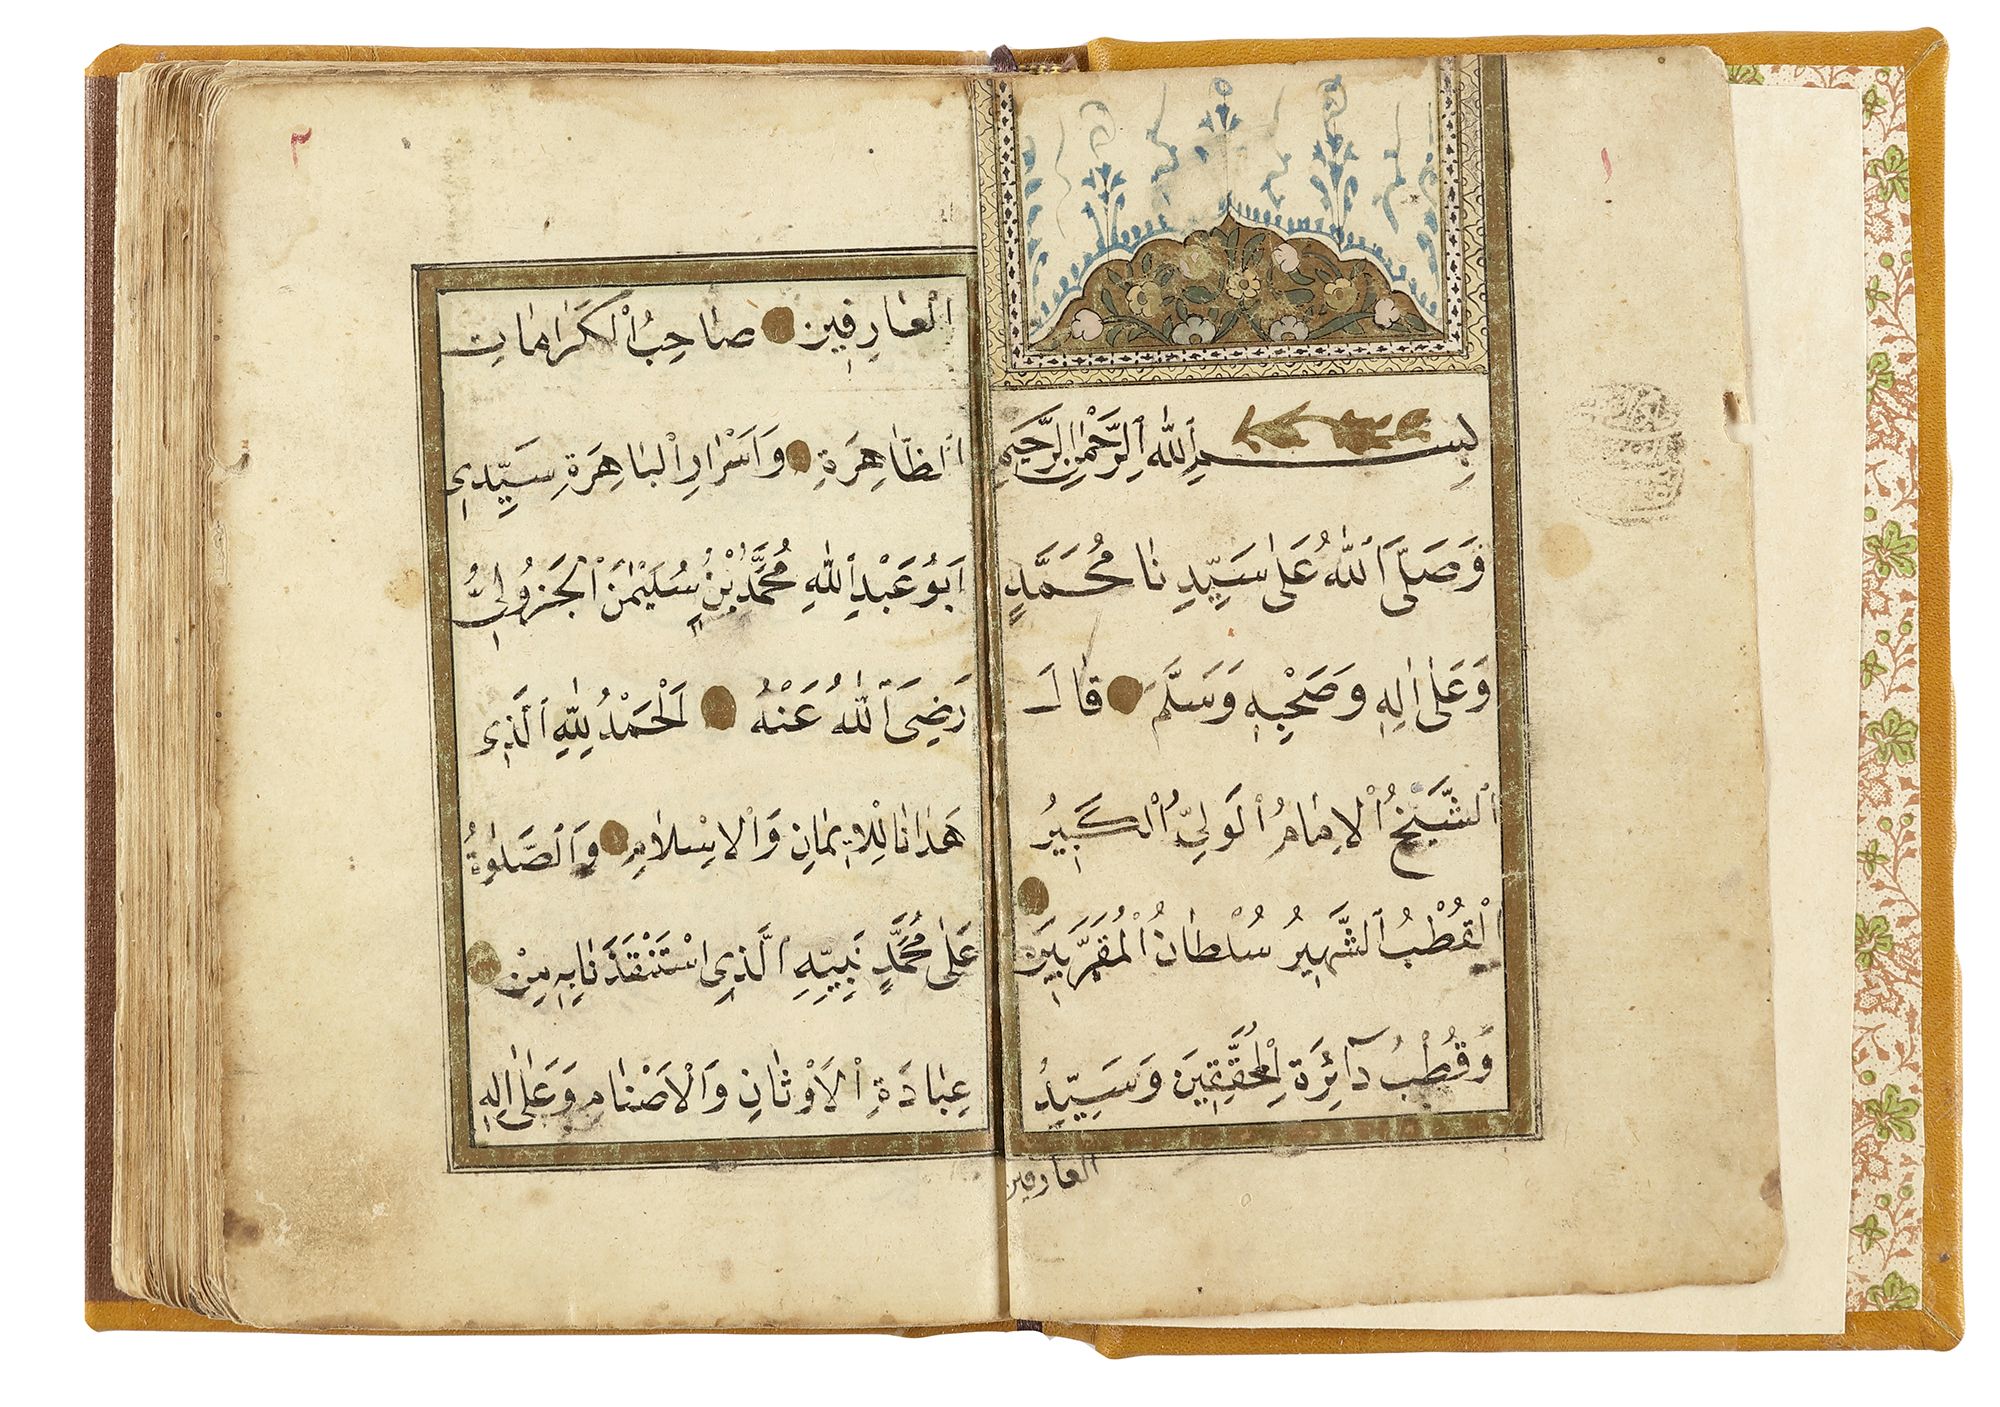 ١
بِسْــــمِ ٱللّٰهِ ٱلرَّحْمٰنِ ٱلرَّحِيمِ
وَصَلَّى ٱللّٰهُ عَلٰى سَيِّدِنَا مُحَمَّدٍ
وَعَلٰى اٰلِهِ وَصَحْبِهِ وَسَلَّمَ قَالَ
ٱلشَّيْخُ ٱلْاِمَامُ ٱلْوَلِيُّ ٱلْكَبِيرُ
ٱلْقُطْبُ ٱلشَّهِيرُ سُلْطَانُ ٱلْمُقَرَّبِينَ
وَقُطْبُ دَآئِرَةِ ٱلْمُحَقِّقِينَ وَسَيِّدُ
العارفين
٢
ٱلْعَارِفِينَ صَاحِبُ ٱلْكَرَامَاتِ
ٱلظَّاهِرَةِ وَاَسْرَارِ ٱلْبَاهِرَةِ سَيِّدِي
اَبُو عَبْدِ ٱللّٰهِ مُحَمَّدُ بْنُ سُلَيْمٰنَ ٱلْجَزُولِيُّ
رَضِيَ ٱللّٰهُ عَنْهُ اَلْحَمْدُ لِلّٰهِ ٱلَّذِي
هَدَانَا لِلْاِيمَانِ وَٱلْاِسْلَامِ وَٱلصَّلٰوةُ
عَلٰى مُحَمَّدٍ نَبِيِّهِ ٱلَّذِي اسْتَنْقَذَنَا بِهِ مِنْ
عِبَادَةِ ٱلْاَوْثَانِ وَٱلْاَصْنَامِ وَعَلٰى اٰلِهِ